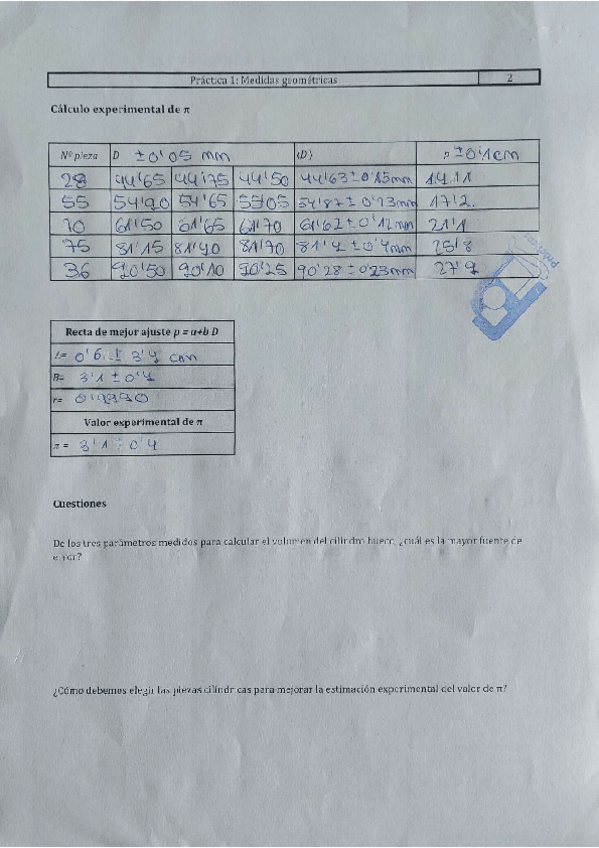 Práctica 1: Medidas geométricas 2
Cálculo experimental de π
Nº pieza D ±0'05 mm ⟨D⟩ p ±0'1cm
28 44'65 44'75 44'50 44'63±0'15mm 14.11
55 54'90 54'65 55'05 54'87±0'23mm 17'2.
70 61'50 61'65 61'70 61'62±0'12mm 21'1
75 81'15 81'40 81'70 81'4±0'4mm 25'8
36 90'50 90'10 90'25 90'28±0'23mm 27'9
Recta de mejor ajuste p = a+b D
0'6 ± 3'4 cm
B= 3'1 ± 0'4
r= 0'9990
Valor experimental de π
π = 3'1 ± 0'4
Cuestiones
De los tres parámetros medidos para calcular el volumen del cilindro hueco, ¿cuál es la mayor fuente de
error?
¿Cómo debemos elegir las piezas cilíndricas para mejorar la estimación experimental del valor de π?